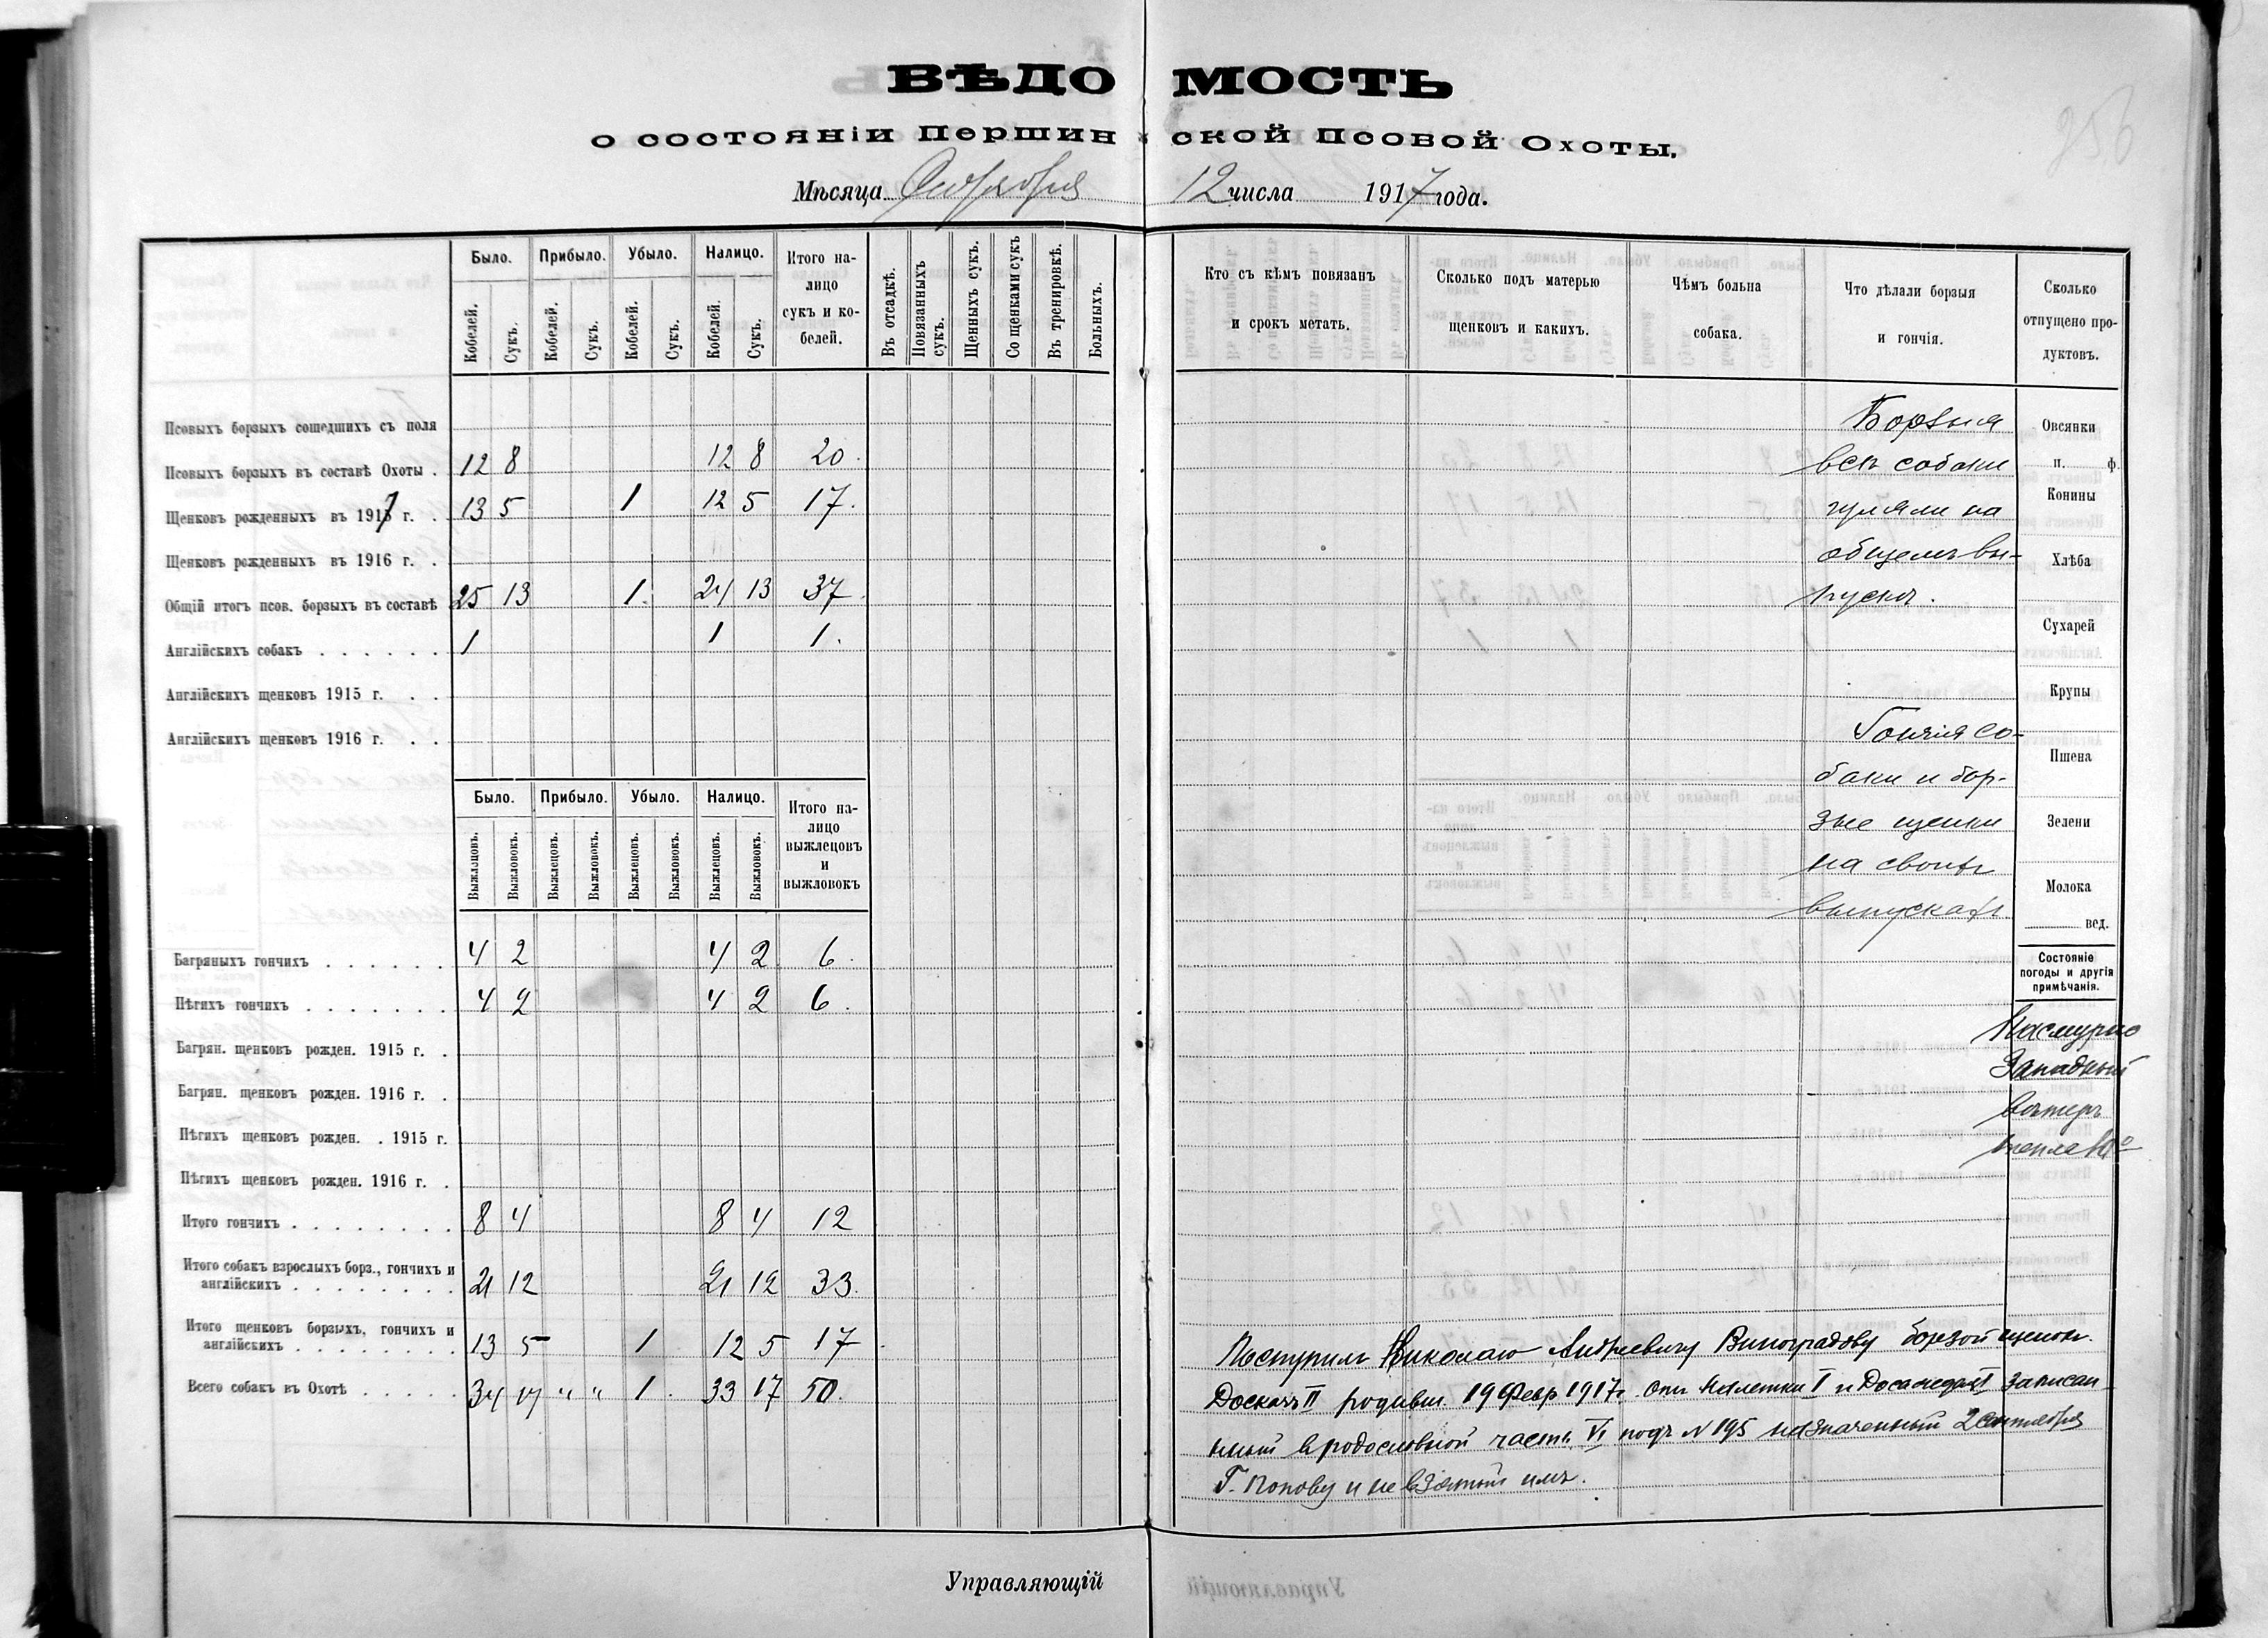 ВѢДОМОСТЬ
о состояніи Першинской Псовой Охоты.
Мѣсяца 12 числа 1917 года.
Было. Прибыло. Убыло. Налицо. Итого налицо сукъ и кобелей.
Кобелей. Сукъ. Кобелей. Сукъ. Кобелей. Сукъ. Кобелей. Сукъ.
Въ отсадкѣ. Повязанныхъ сукъ. Щенныхъ сукъ. Со щенками сукъ Въ тренировкѣ. Больныхъ.
Псовыхъ борзыхъ сошедшихъ съ поля
Псовыхъ борзыхъ въ составѣ Охоты . 12 8 12 8 20.
Щенковъ рожденныхъ въ 1917 г. . 13 5 1 12 5 17.
Щенковъ рожденныхъ въ 1916 г. .
Общій итогъ псов. борзыхъ въ составѣ 25 13 1. 24 13 37
Англійскихъ собакъ . . . . . . 1 1 1.
Англійскихъ щенковъ 1915 г. . .
Англійскихъ щенковъ 1916 г. . .
Было. Прибыло. Убыло. Налицо. Итого налицо выжлецовъ и выжловокъ
Выжлецовъ. Выжловокъ. Выжлецовъ. Выжловокъ. Выжлецовъ. Выжловокъ. Выжлецовъ. Выжловокъ.
Багряныхъ гончихъ . . . . . . 4 2 4 2 6.
Пѣгихъ гончихъ . . . . . . . 4 2 4 2 6.
Багрян. щенковъ рожден. 1915 г. .
Багрян. щенковъ рожден. 1916 г. .
Пѣгихъ щенковъ рожден. . 1915 г.
Пѣгихъ щенковъ рожден. 1916 г. .
Итого гончихъ . . . . . . . . 8 4 8 4 12
Итого собакъ взрослыхъ борз., гончихъ и
англійскихъ . . . . . . . . 21 12 21 12 33.
Итого щенковъ борзыхъ, гончихъ и
англійскихъ . . . . . . . . 13 5 1 12 5 17
Всего собакъ въ Охотѣ . . . . . 34 17 " " 1. 33 17 50.
Управляющій
Кто съ кѣмъ повязанъ
и срокъ метать.
Сколько подъ матерью
щенковъ и какихъ.
Чѣмъ больна
собака.
Что дѣлали борзыя
и гончія.
Сколько
отпущено про-
дуктовъ.
Борзыя
всѣ собаки
гуляли на
общемъ вы-
пускѣ.
Гончія со-
баки и бор-
зые щенки
на своихъ
выпускахъ
Овсянки
п. ф.
Конины
Хлѣба
Сухарей
Крупы
Пшена
Зелени
Молока
вед.
Состояніе
погоды и другія
примѣчанія.
Пасмурно
Западный
вѣтеръ
тепла 10°
Николаю Андреевичу Виноградову борзой щенокъ
Доскачъ II родивш. 19 Февр 1917г. отъ I и I записан-
ный въ родословной части VI подъ N 195 назначенный 2 сентября
Г. Попову и не взятый имъ.